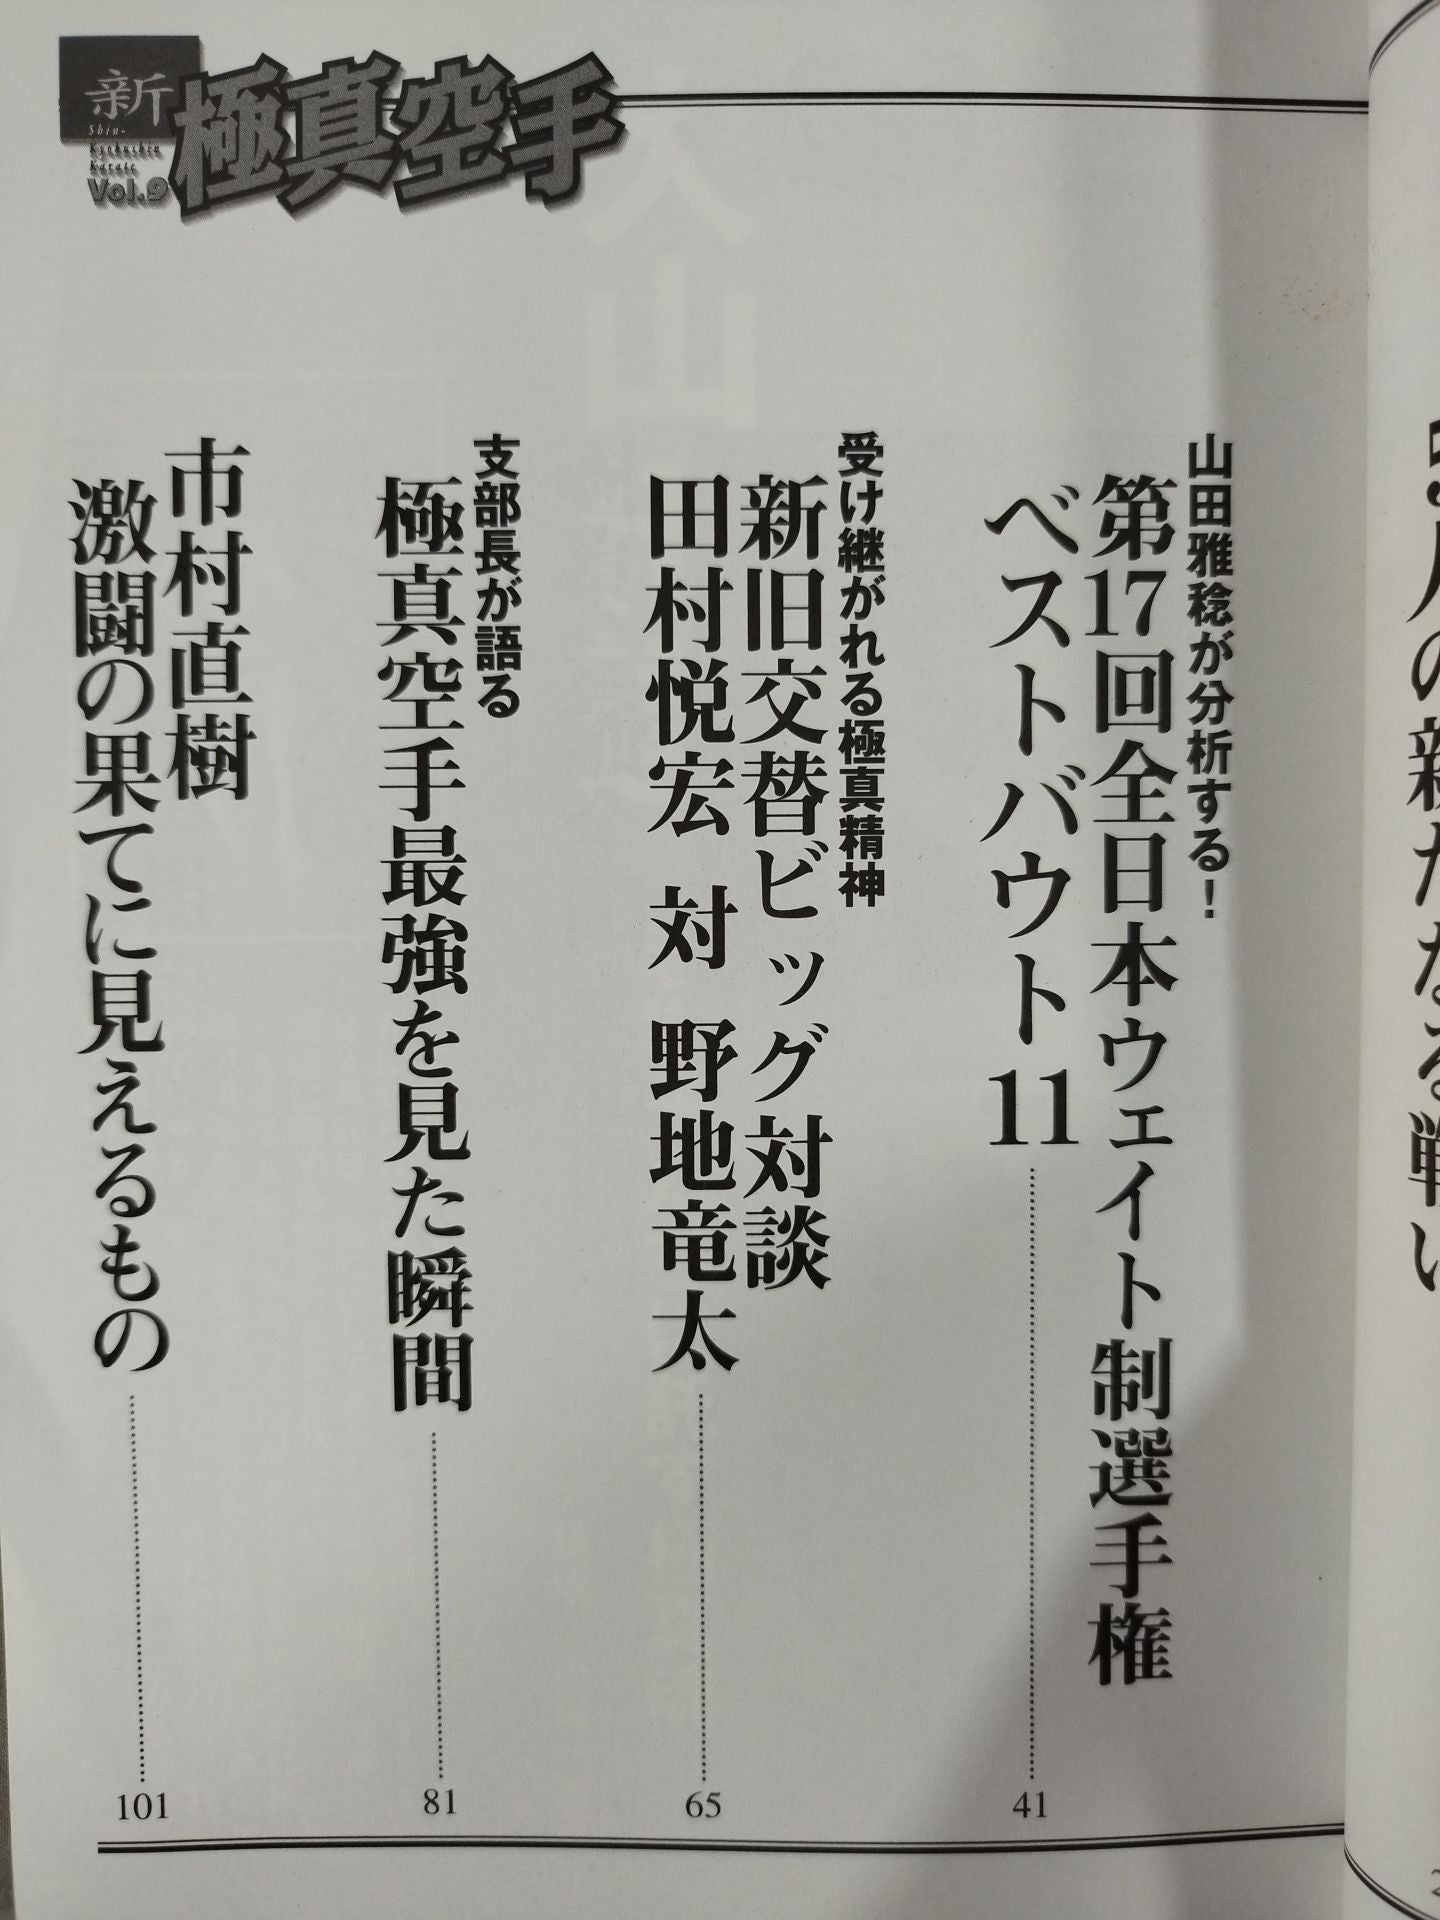 新
Shin-
Kyokushin
Karate
Vol.9
極真空手
の新たなる戦い
山田雅稔が分析する!
第17回全日本ウェイト制選手権
ベストバウト11
41
受け継がれる極真精神
新旧交替ビッグ対談
田村悦宏 対 野地竜太
65
支部長が語る
極真空手最強を見た瞬間
81
市村直樹
激闘の果てに見えるもの
101